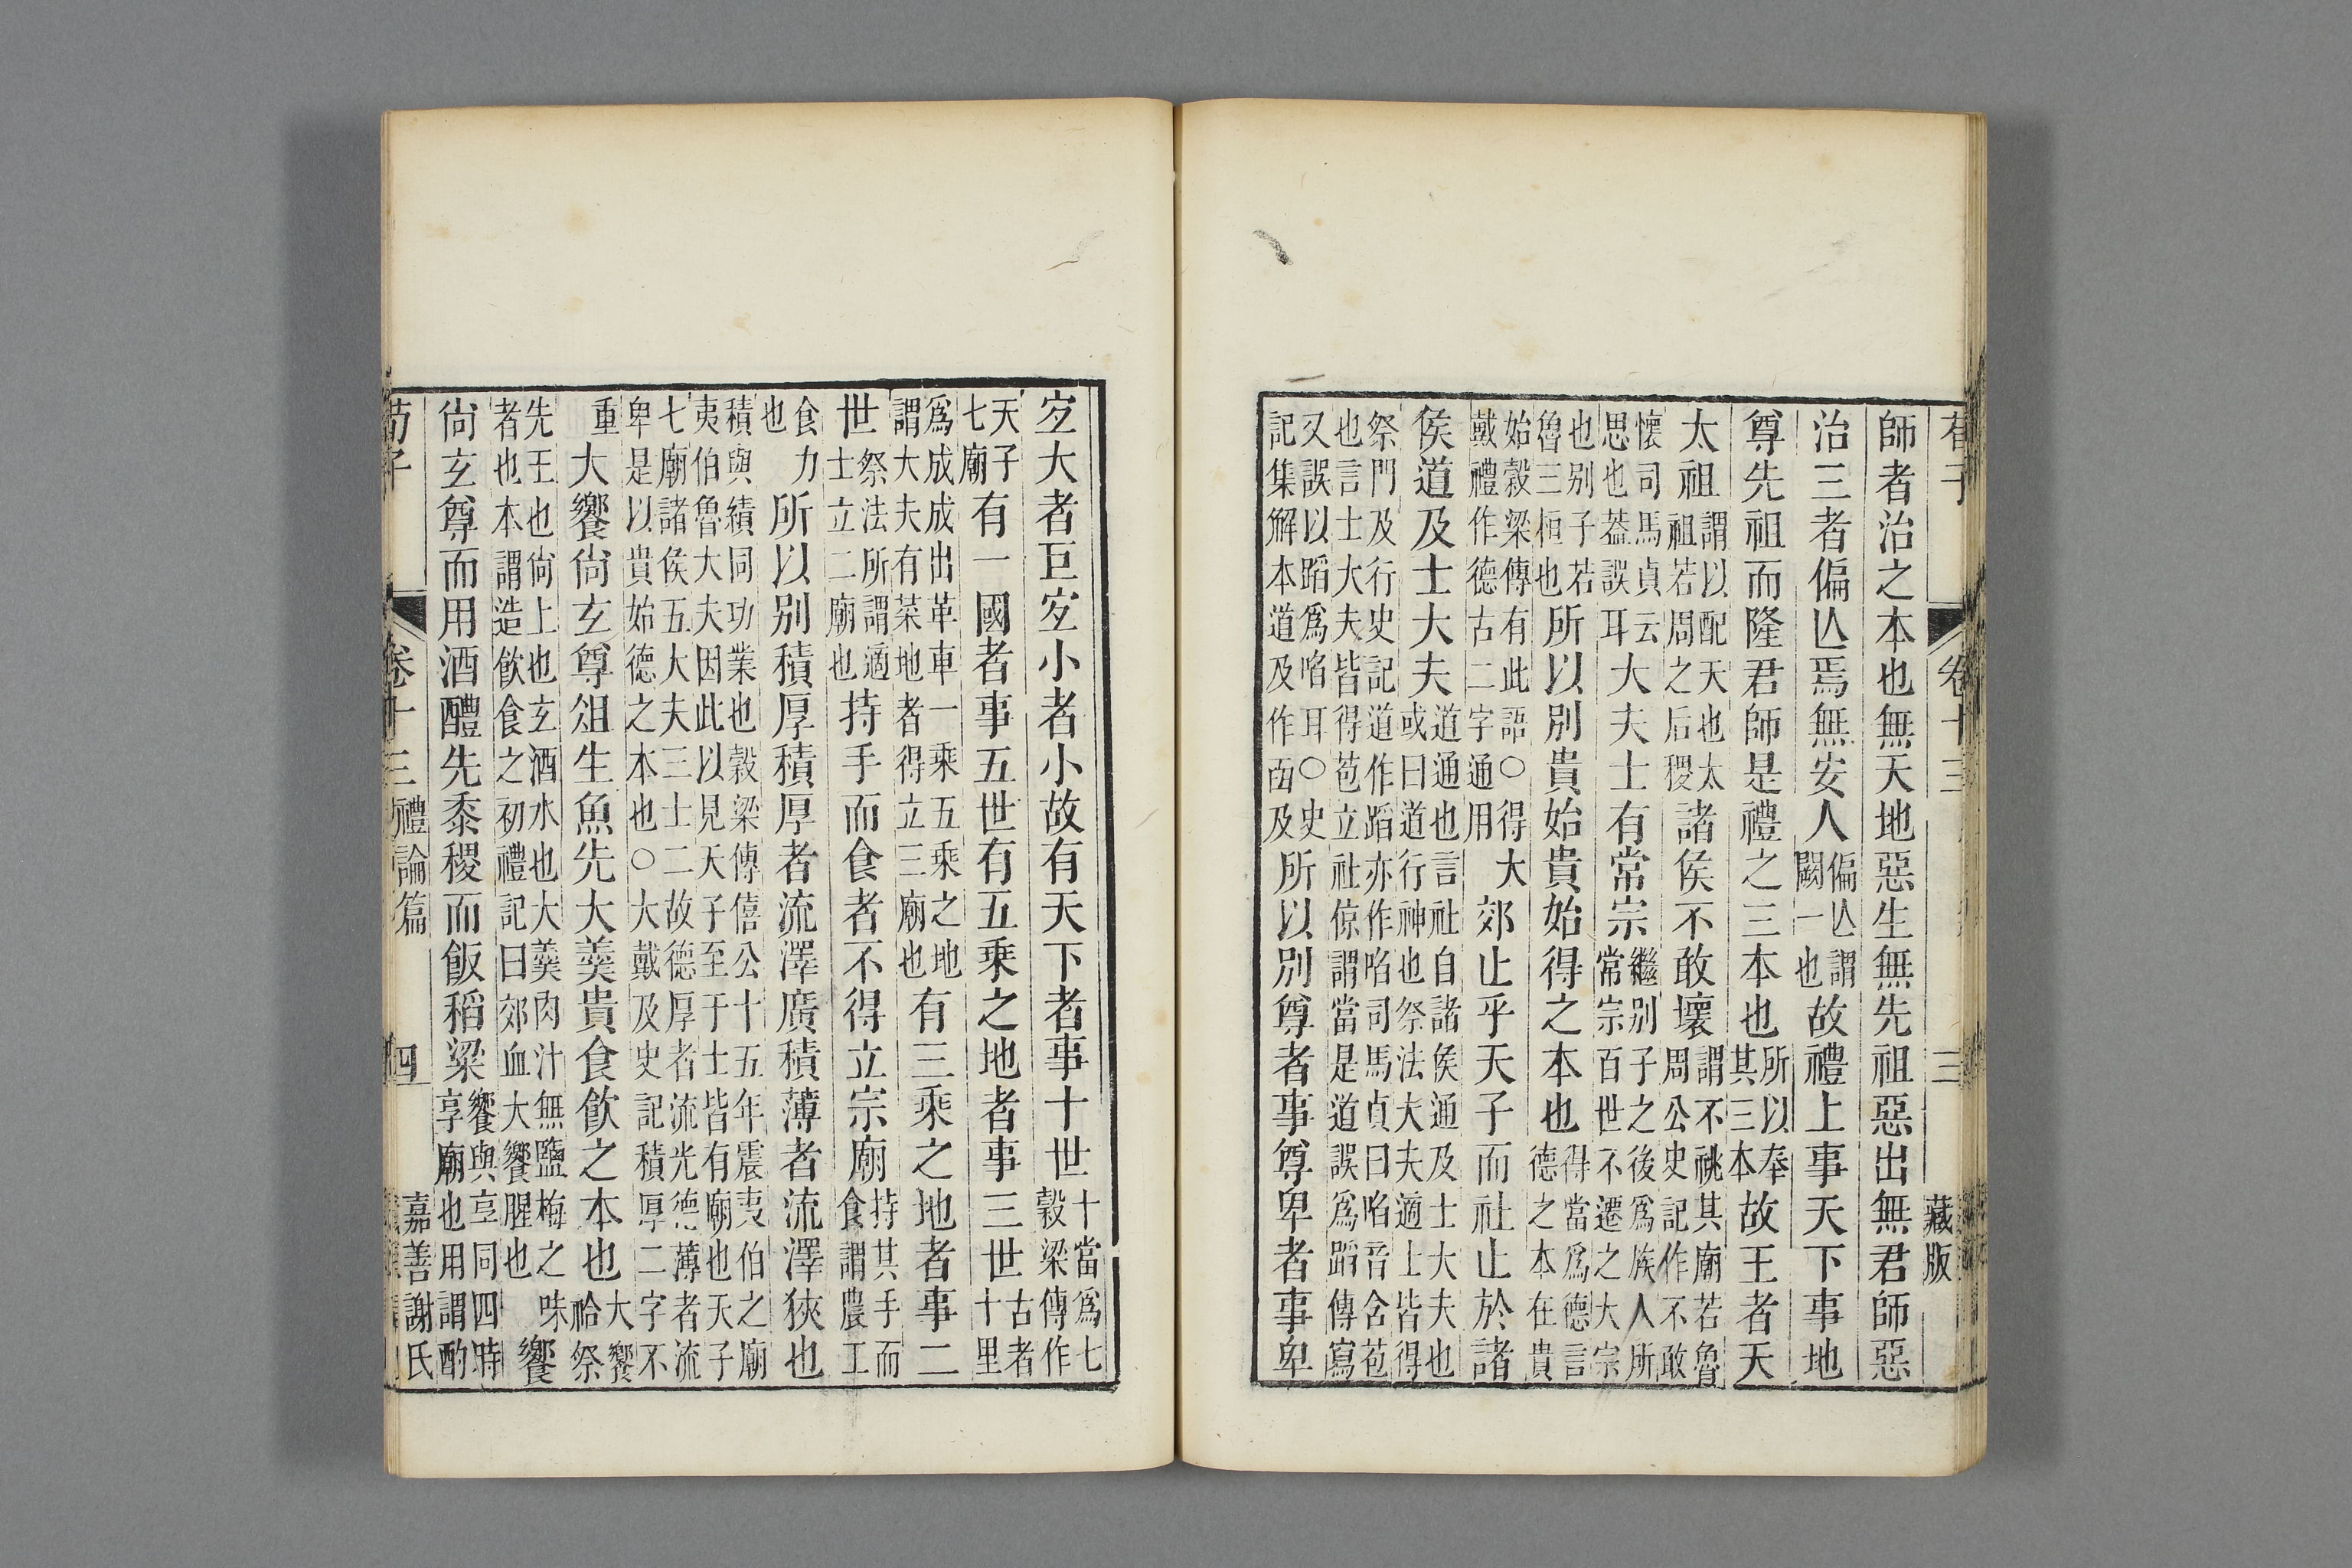 荀子 卷十三 三 藏版
師者治之本也無天地惡生無先祖惡出無君師惡
治三者偏亾焉無安人偏亾謂闕一也故禮上事天下事地
尊先祖而隆君師是禮之三本也所以奉其三本故王者天
太祖謂以配天也太祖若周之后稷諸侯不敢壞謂不祧其廟若魯周公史記作不敢
懷司馬貞云思也葢誤耳大夫士有常宗繼别子之後爲族人所常宗百世不遷之大宗
也别子若魯三桓也所以別貴始貴始得之本也得當爲德言德之本在貴
始榖梁傳有此語○得大戴禮作德古二字通用郊止乎天子而社止於諸
侯道及士大夫道通也言社自諸侯通及士大夫也或曰道行神也祭法大夫適上皆得
祭門及行史記道作蹈亦作啗司馬貞曰啗音含苞也言士大夫皆得苞立社倞謂當是道誤爲蹈傳寫
又誤以蹈爲啗耳○史記集解本道及作函及所以別尊者事尊卑者事卑
宐大者巨宐小者小故有天下者事十世十當爲七榖梁傳作
天子七廟有一國者事五世有五乘之地者事三世古者十里
爲成成出革車一乘五乘之地謂大夫有菜地者得立三廟也有三乘之地者事二
世祭法所謂適士立二廟也持手而食者不得立宗廟持其手而食謂農工
食力也所以別積厚積厚者流澤廣積薄者流澤狹也
積與績同功業也榖梁傳僖公十五年震夷伯之廟夷伯魯大夫因此以見天子至于士皆有廟也天子
七廟諸侯五大夫三士二故德厚者流光德薄者流卑是以貴始德之本也○大戴及史記積厚二字不
重大饗尙玄尊俎生魚先大羹貴食飮之本也大饗祫祭
先王也尙上也玄酒水也大羹肉汁無鹽梅之味者也本謂造飮食之初禮記曰郊血大饗腥也饗
尙玄尊而用酒醴先黍稷而飯稻粱饗與享同四時享廟也用謂酌
荀子 卷十三 禮論篇 四 嘉善謝氏